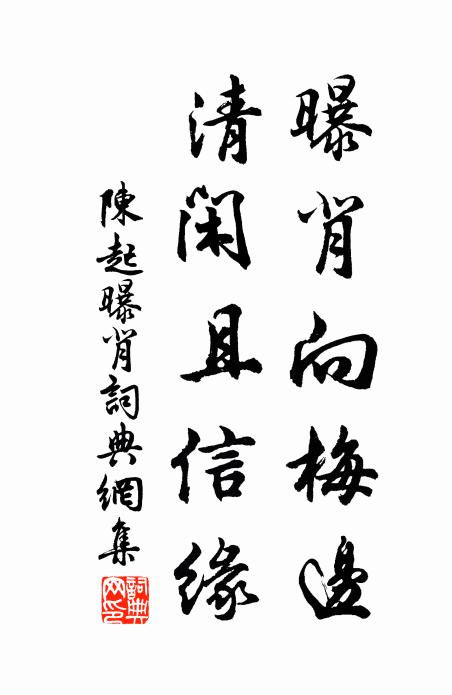 曝背向梅邊
清閑且信緣
陳起曝背詞典網集
詞典网印